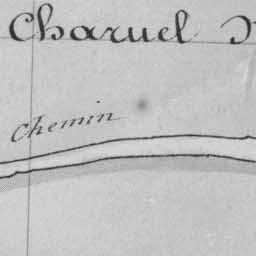 Charuel
Chemin